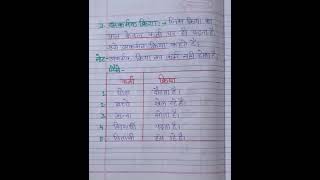 2. अकर्मक क्रिया :- जिस क्रिया का
फल केवल कर्ता पर ही पड़ता है
उसे अकर्मक क्रिया कहते हैं।
नोट- अकर्मक क्रिया का कर्म नहीं होता है
जैसे -
कर्ता क्रिया
1. दौड़ता है।
2. बच्चे खेल रहे हैं।
3. सोता है।
4. पढ़ता है।
5. पिताजी हंस रहे हैं।